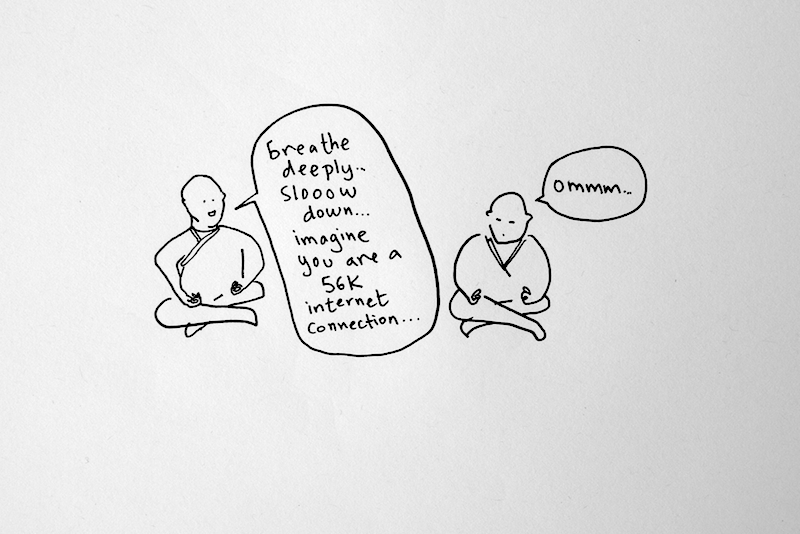 breathe
deeply..
slooow
down...
imagine
you are a
56K
internet
connection...
ommm...